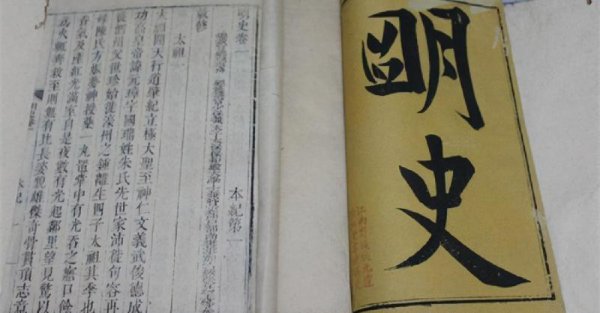 明史
明史卷一 本紀第一
敕修
太祖
太祖開天行道肇紀立極大聖至神仁文義武俊德成
功高皇帝諱元璋字國瑞姓朱氏先世家沛徙句容再
徙泗州父世珍始徙濠州之鍾離生四子太祖其季也
母陳氏方娠夢神授藥一丸置掌中有光吞之寤口餘
香氣及產紅光滿室自是夜數有光起鄰里望見驚以
為火輒奔救至則無有比長姿貌雄傑奇骨貫頂志意
本紀